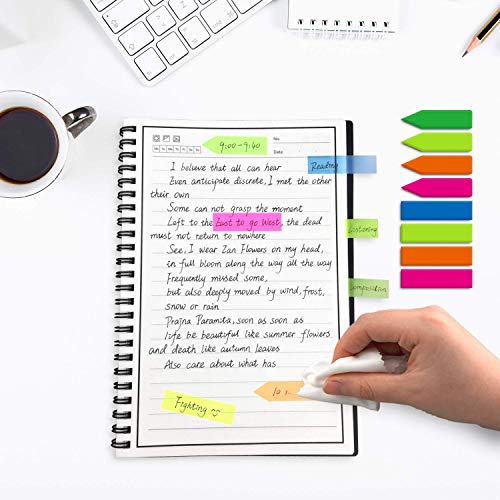 9:00-9:40
No.
Mo Tu We Th Fr Sa Su
Date
I believe that all can hear
Reading
Even anticipate discrete, I met the other
their own
Some can not grasp the moment
Left to the East to go West, the dead
must not return to nowhere
Listening
See, I wear Zan Flowers on my head,
in full bloom along the way all the way
Frequently missed some,
but also deeply moved by wind, frost,
Composition
snow or rain
Prajna Paramita, soon as soon as
life be beautiful like summer flowers
and death like autumn leaves
Also care about what has
10
Fighting